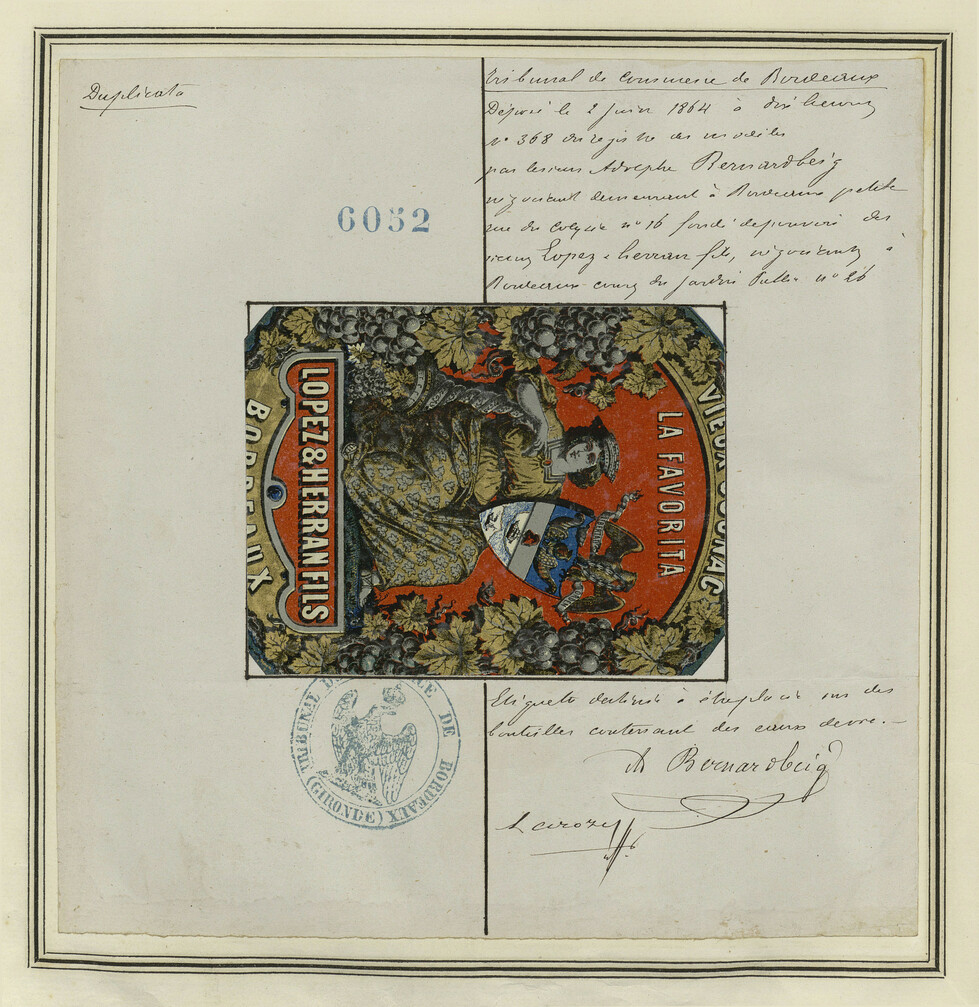 Duplicata
Tribunal de Commerce de Bordeaux
Déposé le 2 Juin 1864 à dix heures
n° 368 du registre des modèles
par le sieur Adolphe Bernardbeig
négociant demeurant à Bordeaux petite
rue du Colysée n° 16 fondé de pouvoirs des
sieurs Lopez & herran fils, négociants à
Bordeaux cours du Jardin Public n° 26
6052
VIEUX COGNAC
LA FAVORITA
LOPEZ & HERRAN FILS
BORDEAUX
TRIBUNAL DE COMMERCE DE BORDEAUX
(GIRONDE)
Etiquette destinée à être placée sur des
bouteilles contenant des eaux de vie.
A Bernardbeig